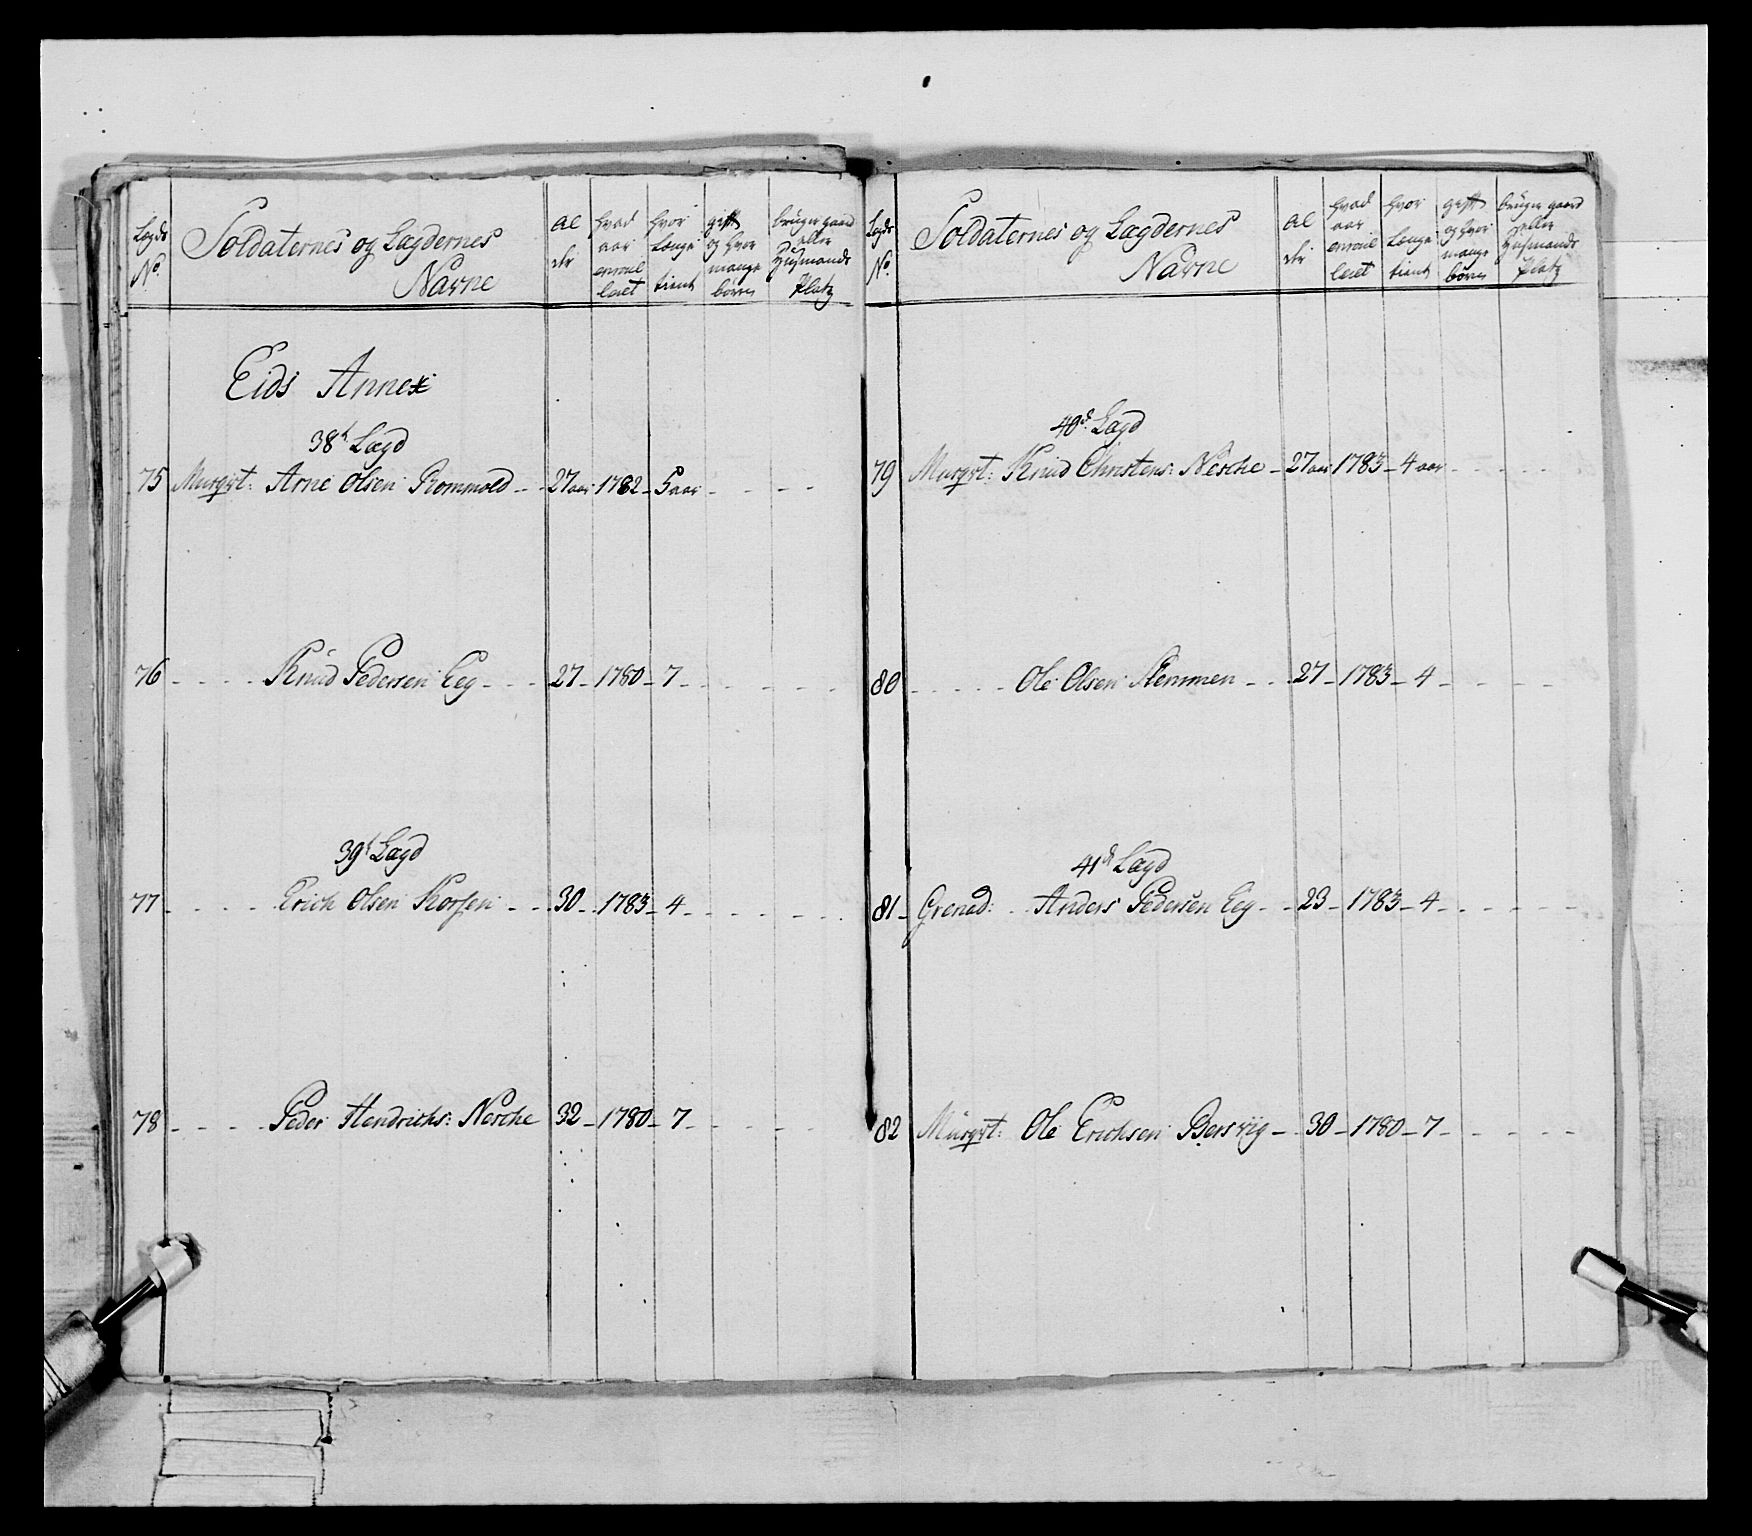 Lægds No. Soldaternes og Lægdernes Navne Al der hvad aar enroul leret hvor Længe tient gift og hvor mange børn bruger gaard eller Huusmands Platz
Eids Annex
38t Lægd
75 Musqvt: Arne Olsen Rommold - - 27 aar 1782 - 5 aar - - - -
76 - - - - Knud Pedersen Eeg - - - 27 - 1780 - 7 - - - - -
39t Lægd
77 - - - - Erich Olsen Korsen - - 30 - 1783 - 4 - - - - -
78 - - - - Peder Hendrichs: Nesche 32 - 1780 - 7 - - - -
Lægds No. Soldaternes og Lægdernes Navne Al der hvad aar enroul leret hvor Længe tient gift og hvor mange børn bruger gaard eller Huusmands Platz
40de Lægd
79 Musqvt: Knud Christens: Nesche - 27 aar 1783 - 4 aar - - - -
80 - - - - Ole Olsen Stemmen - - 27 - 1783 - 4 - - - -
41de Lægd
81 - Grenad: - Anders Pedersen Eeg - - 23 - 1783 - 4 - - - -
82 Musqvt: Ole Erichsen Bersvig - - 30 - 1780 - 7 - - - -